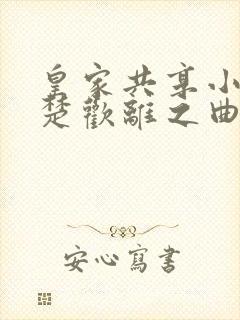 皇家共享小
楚歡離之曲
安心寫書